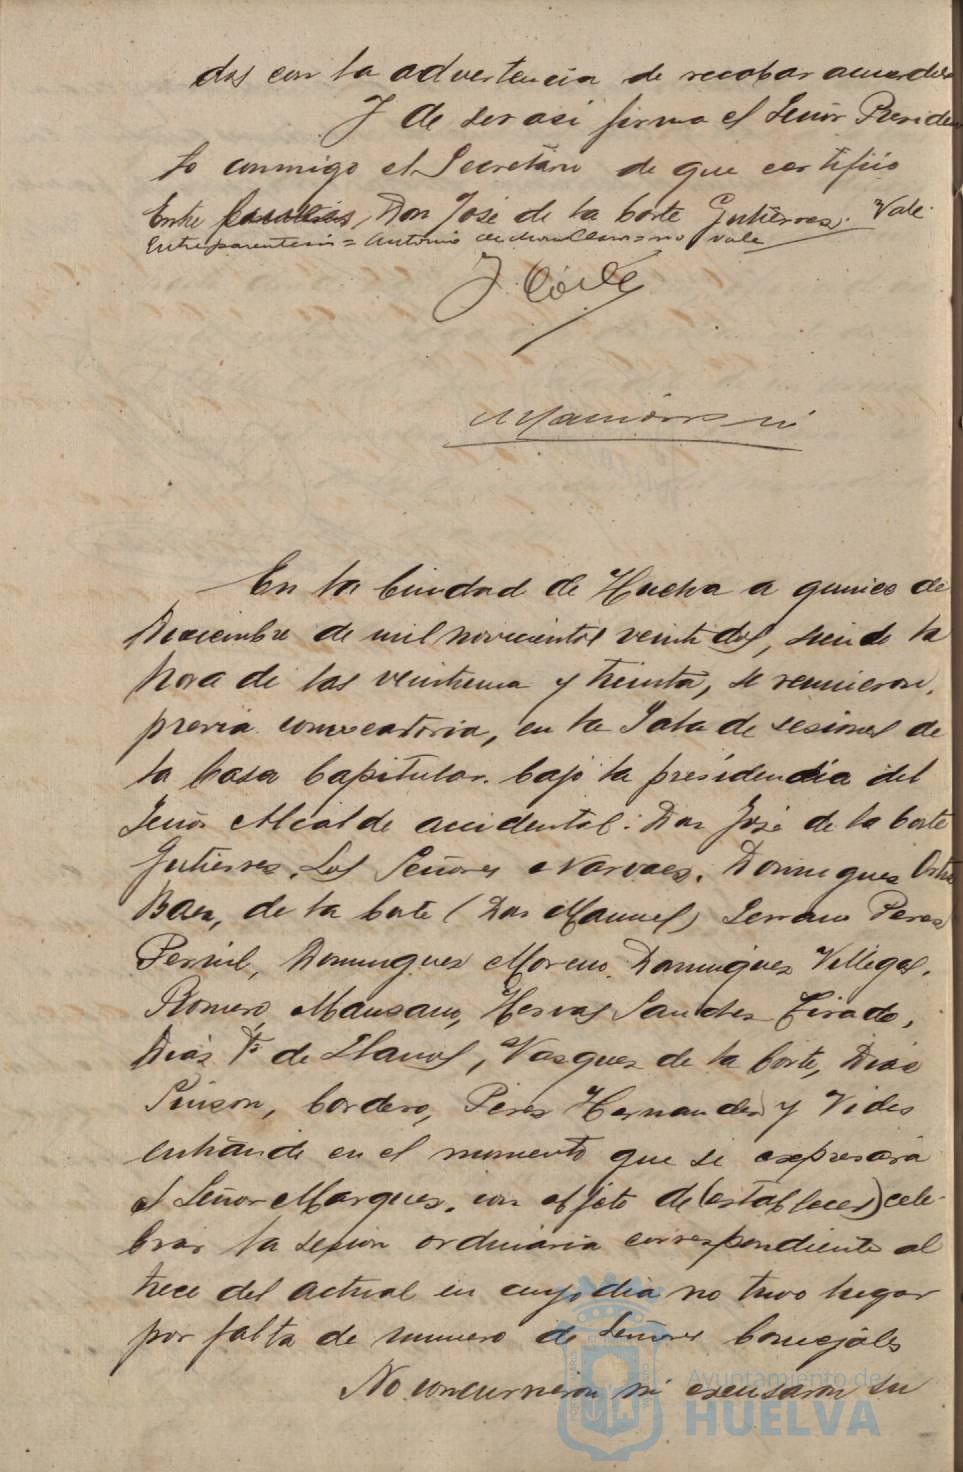 dos con la advertencia de recabar acuerdo
Y de ser asi firma el Señor Presiden
te conmigo el Secretario de que certifico
Entre Don José de la Corte Gutierrez. Vale.
Entreparentesis = Antonio = no vale
J. Corte
En la Ciudad de Huelva a quince de
Diciembre de mil novecientos veinte dos, siendo la
hora de las veintiuna y treinta, se reunieron,
previa convocatoria, en la Sala de sesiones de
la Casa Capitular. bajo la presidencia del
Señor Alcalde accidental: Don José de la Corte
Gutierrez. Los Señores Narvaez. Dominguez Ortiz
Baez, de la Corte (Don Manuel) Serrano Perez
Pernil, Dominguez Moreno. Dominguez Villegas.
Romero Manzano, Hervas Sanchez Tirado,
Diaz Fº de Llanos, Vazquez de la Corte, Diaz
Pinzon, Cordero, Perez Hernandez y Vides
entrando en el momento que se expresará
el Señor Marquez. con objeto de (establecer) cele-
brar la sesion ordinaria correspondiente al
trece del actual en cuyo dia no tuvo lugar
por falta de numero de Señores Concejales
No concurrieron ni excusaron su
Ayuntamiento de
HUELVA